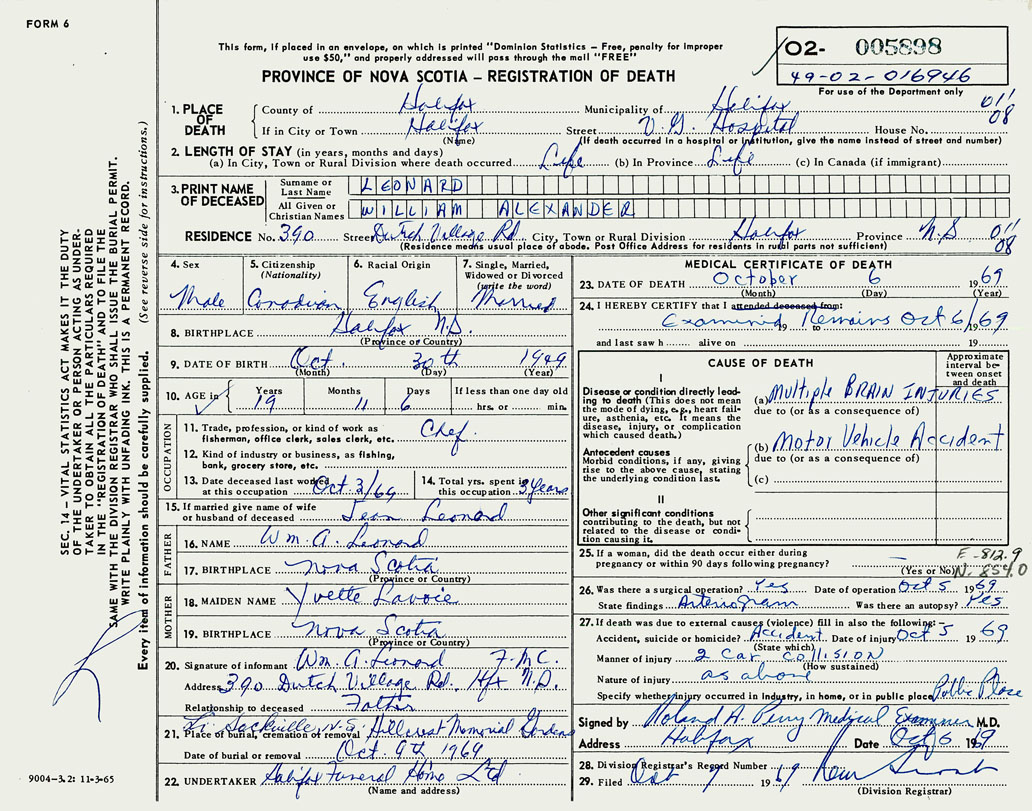 FORM 6
This form, if placed in an envelope, on which is printed "Dominion Statistics – Free, penalty for improper
use $50," and properly addressed will pass through the mail "FREE"
PROVINCE OF NOVA SCOTIA – REGISTRATION OF DEATH
02- 005898
49-02-016946
For use of the Department only
1. PLACE OF DEATH
County of Halifax Municipality of Halifax 011
If in City or Town Halifax Street V.G. Hospital House No. 08
(Name) (If death occurred in a hospital or institution, give the name instead of street and number)
2. LENGTH OF STAY (in years, months and days)
(a) In City, Town or Rural Division where death occurred Life (b) In Province Life (c) In Canada (if immigrant)
3. PRINT NAME OF DECEASED
Surname or Last Name LEONARD
All Given or Christian Names WILLIAM ALEXANDER
RESIDENCE No. 390 Street Dutch Village Rd. City, Town or Rural Division Halifax Province N.S 011
(Residence means usual place of abode. Post Office Address for residents in rural parts not sufficient) 08
4. Sex Male
5. Citizenship (Nationality) Canadian
6. Racial Origin English
7. Single, Married, Widowed or Divorced (write the word) Married
8. BIRTHPLACE Halifax N.S.
(Province or Country)
9. DATE OF BIRTH Oct. 30th 1949
(Month) (Day) (Year)
10. AGE in Years 19 Months 11 Days 6 If less than one day old hrs. or min.
OCCUPATION
11. Trade, profession, or kind of work as fisherman, office clerk, sales clerk, etc. Chef
12. Kind of industry or business, as fishing, bank, grocery store, etc.
13. Date deceased last worked at this occupation Oct 3/69
14. Total yrs. spent in this occupation 3 years
15. If married give name of wife or husband of deceased Jean Leonard
FATHER
16. NAME Wm. A. Leonard
17. BIRTHPLACE Nova Scotia
(Province or Country)
MOTHER
18. MAIDEN NAME Yvette Lavoie
19. BIRTHPLACE Nova Scotia
(Province or Country)
20. Signature of informant Wm. A. Leonard F.M.C.
Address 390 Dutch Village Rd. Hfx N.S.
Relationship to deceased Father
Sackville, N.S.
21. Place of burial, cremation or removal Hillcrest Memorial Gardens
Date of burial or removal Oct. 9th 1969
22. UNDERTAKER Halifax Funeral Home Ltd
(Name and address)
MEDICAL CERTIFICATE OF DEATH
23. DATE OF DEATH October 6 1969
(Month) (Day) (Year)
24. I HEREBY CERTIFY that I attended deceased from:
Examined Remains Oct 6/69
19 to 19
and last saw h alive on 19
CAUSE OF DEATH
Approximate interval between onset and death
I
Disease or condition directly leading to death (This does not mean the mode of dying, e.g., heart failure, asthenia, etc. It means the disease, injury, or complication which caused death.)
(a) Multiple BRAIN INJURIES
due to (or as a consequence of)
Antecedent causes
Morbid conditions, if any, giving rise to the above cause, stating the underlying condition last.
(b) Motor Vehicle Accident
due to (or as a consequence of)
(c)
II
Other significant conditions contributing to the death, but not related to the disease or condition causing it.
25. If a woman, did the death occur either during pregnancy or within 90 days following pregnancy? — (Yes or No)
E-812.9
N.854.0
26. Was there a surgical operation? Yes Date of operation Oct 5 1969
State findings Arteriogram Was there an autopsy? Yes
27. If death was due to external causes (violence) fill in also the following:
Accident, suicide or homicide? Accident Date of injury Oct 5 1969
(State which)
Manner of injury 2 Car Collision
(How sustained)
Nature of injury as above
Specify whether injury occurred in industry, in home, or in public place Public Place
Signed by Roland A. Perry Medical Examiner M.D.
Address Halifax Date Oct 6 1969
28. Division Registrar's Record Number
29. Filed Oct 7 1969
(Division Registrar)
SEC. 14 – VITAL STATISTICS ACT MAKES IT THE DUTY
OF THE UNDERTAKER OR PERSON ACTING AS UNDER-
TAKER TO OBTAIN ALL THE PARTICULARS REQUIRED
IN THE "REGISTRATION OF DEATH" AND TO FILE THE
SAME WITH THE DIVISION REGISTRAR WHO SHALL ISSUE THE BURIAL PERMIT.
WRITE PLAINLY WITH UNFADING INK. THIS IS A PERMANENT RECORD.
Every item of information should be carefully supplied. (See reverse side for instructions.)
9004–3.2: 11-3-65